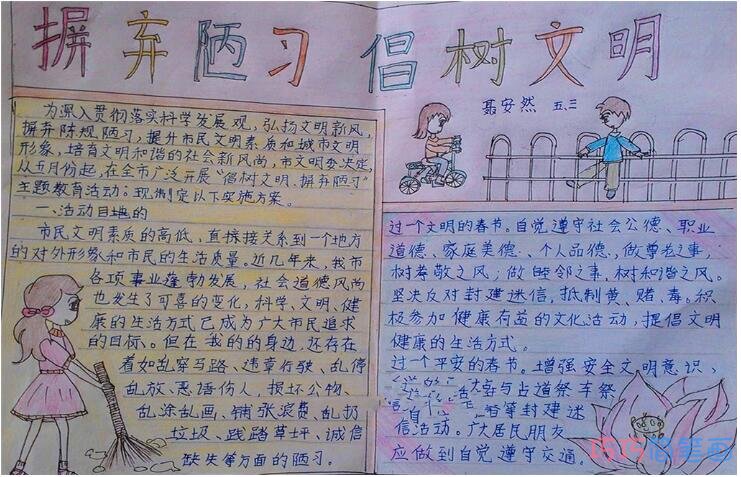 摒弃陋习 倡树文明
聂安然 五、三
为深入贯彻落实科学发展观,弘扬文明新风,
摒弃陈规陋习,提升市民文明素质和城市文明
形象,培育文明和谐的社会新风尚,市文明委决定,
从五月份起,在全市广泛开展“倡树文明、摒弃陋习”
主题教育活动。现制定以下实施方案。
一、活动目的
市民文明素质的高低、直接关系到一个地方
的对外形象和市民的生活质量。近几年来,我市
各项事业蓬勃发展,社会道德风尚
也发生了可喜的变化,科学、文明、健
康的生活方式已成为广大市民追求
的目标。但在我的的身边,还存在
着如乱穿马路、违章行驶、乱停
乱放、恶语伤人,损坏公物、
乱涂乱画、铺张浪费、乱扔
垃圾、践踏草坪、诚信
缺失等方面的陋习。
过一个文明的春节。自觉遵守社会公德、职业
道德、家庭美德、个人品德,做尊老之事,
树尊敬之风;做睦邻之事,树和谐之风。
坚决反对封建迷信,抵制黄、赌、毒。积
极参加健康有益的文化活动,提倡文明
健康的生活方式。
过一个平安的春节。增强安全文明意识、
与占道祭车祭
等封建迷
信活动。广大居民朋友
应做到自觉遵守交通。